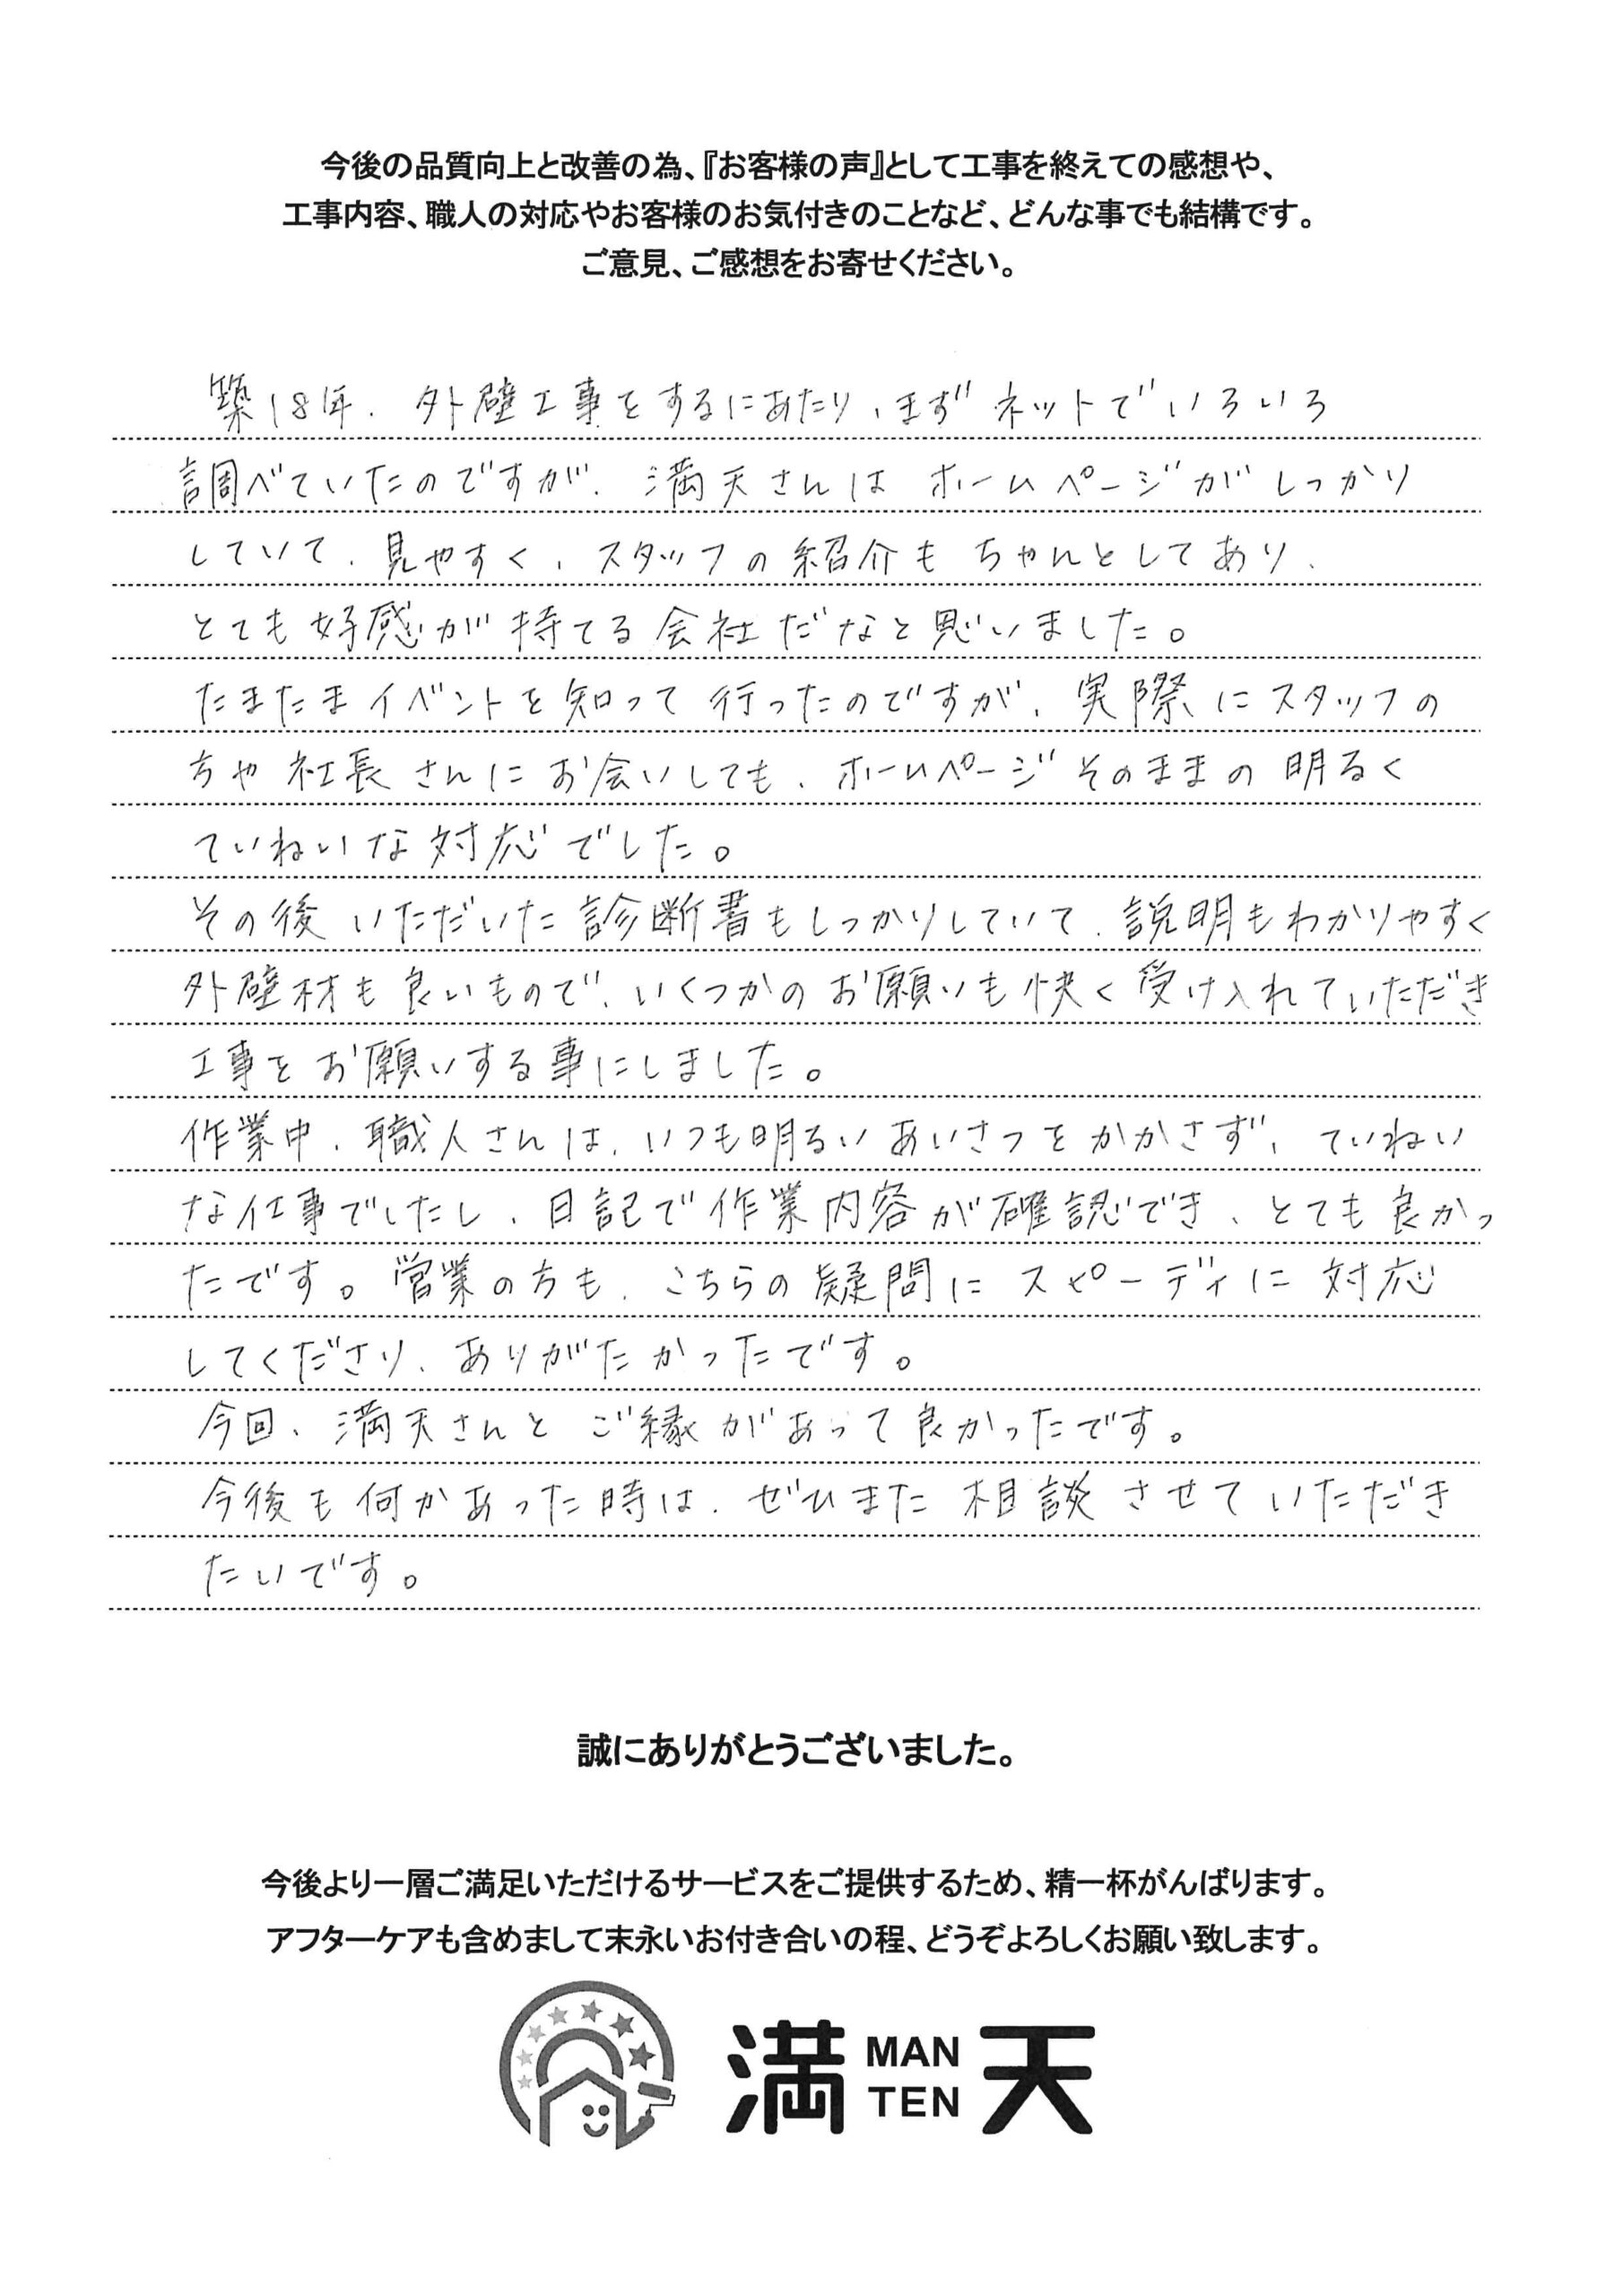 今後の品質向上と改善の為、『お客様の声』として工事を終えての感想や、
工事内容、職人の対応やお客様のお気付きのことなど、どんな事でも結構です。
ご意見、ご感想をお寄せください。
築18年、外壁工事をするにあたり、まずネットでいろいろ
調べていたのですが、満天さんはホームページがしっかり
していて、見やすく、スタッフの紹介もちゃんとしてあり、
とても好感が持てる会社だなと思いました。
たまたまイベントを知って行ったのですが、実際にスタッフの
ちや社長さんにお会いしても、ホームページそのままの明るく
ていねいな対応でした。
その後いただいた診断書もしっかりしていて、説明もわかりやすく
外壁材も良いもので、いくつかのお願いも快く受け入れていただき
工事をお願いする事にしました。
作業中、職人さんは、いつも明るいあいさつをかかさず、ていねい
な仕事でしたし、日記で作業内容が確認でき、とても良かっ
たです。営業の方も、こちらの疑問にスピーディに対応
してくださり、ありがたかったです。
今回、満天さんとご縁があって良かったです。
今後も何かあった時は、ぜひまた相談させていただき
たいです。
誠にありがとうございました。
今後より一層ご満足いただけるサービスをご提供するため、精一杯がんばります。
アフターケアも含めまして末永いお付き合いの程、どうぞよろしくお願い致します。
満 MAN TEN 天